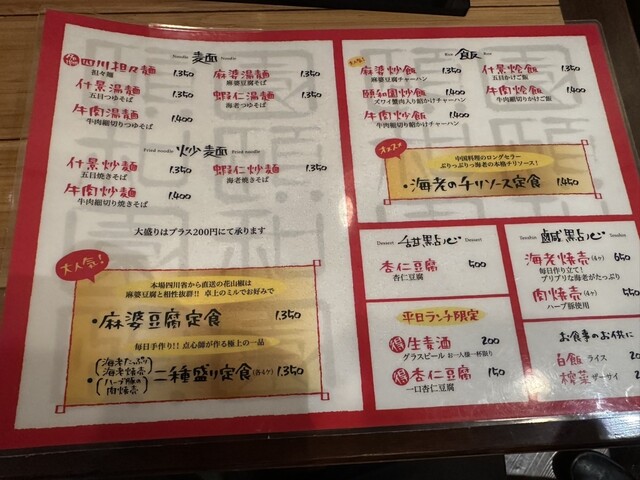 Noodle 麺 Noodle
四川担々麺 1.350
担々麺
什景湯麺 1.350
五目つゆそば
牛肉湯麺 1.400
牛肉細切りつゆそば
麻婆湯麺 1.350
麻婆豆腐そば
蝦仁湯麺 1.350
海老つゆそば
Fried noodle 炒麺 Fried noodle
什景炒麺 1.350
五目焼きそば
牛肉炒麺 1.400
牛肉細切り焼きそば
蝦仁炒麺 1.350
海老焼きそば
大盛りはプラス200円にて承ります
大人気!
本場四川省から直送の花山椒は
麻婆豆腐と相性抜群!! 卓上のミルでお好みで
・麻婆豆腐定食 1.350
毎日手作り!! 点心師が作る極上の一品
(海老たっぷり海老焼売)
・(ハーブ豚の肉焼売) 二種盛り定食(各4ケ) 1.350
Rice 飯 Rice
麻婆炒飯 1.350
麻婆豆腐チャーハン
頤和園炒飯 1.400
ズワイ蟹肉入り餡かけチャーハン
牛肉炒飯 1.400
牛肉細切り餡かけチャーハン
什景燴飯 1.350
五目かけご飯
牛肉燴飯 1.400
牛肉細切りかけご飯
オススメ
中国料理のロングセラー
ぷりっぷりっ海老の本格チリソース!
・海老のチリソース定食 1.450
Dessert 甜點心 Dessert
杏仁豆腐 500
杏仁豆腐
平日ランチ限定
得 生麦酒
グラスビール お一人様一杯限り
得 杏仁豆腐 150
一口杏仁豆腐
鹹點心
海老焼売(4ケ) 650
毎日作り立て!
プリプリな海老がたっぷり
肉焼売(4ケ) 550
ハーブ豚使用
お食事のお供に
白飯 ライス
榨菜 ザーサイ